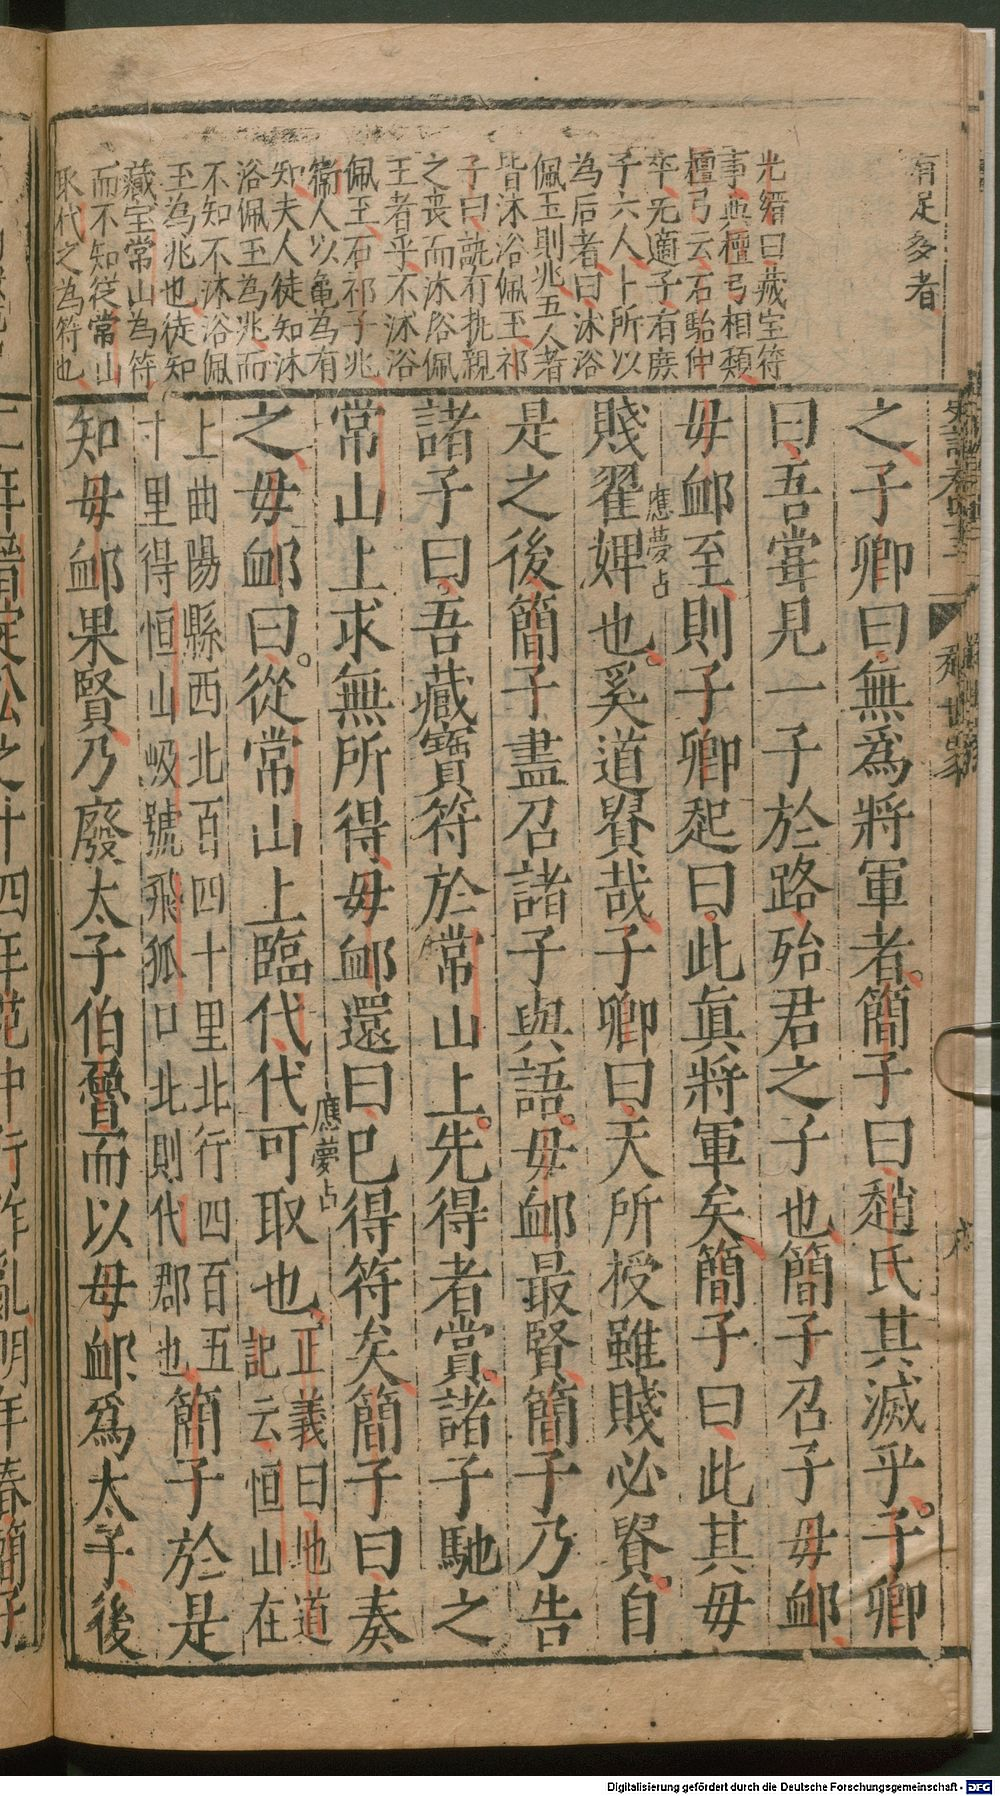 有足多者
光縉曰藏宝符
事與檀弓相類
檀弓云石駘仲
卒无適子有庶
子六人卜所以
為后者曰沐浴
佩玉則兆五人者
皆沐浴佩玉祁
子曰孰有执親
之丧而沐浴佩
王者乎不沐浴
佩玉石祁子兆
衛人以亀為有
知夫人徒知沐
浴佩玉為兆而
不知不沐浴佩
玉為兆也徒知
藏宝常山為符
而不知従常山
取代之為符也
史記卷四十三
趙世家
之子卿曰無爲將軍者簡子曰趙氏其滅乎子卿
曰吾甞見一子於路殆君之子也簡子召子毋卹
毋卹至則子卿起曰此眞將軍矣簡子曰此其毋
應夢占
賤翟婢也奚道貴哉子卿曰天所授雖賤必貴自
是之後簡子盡召諸子與語毋卹最賢簡子乃告
諸子曰吾藏寶符於常山上先得者賞諸子馳之
常山上求無所得毋卹還曰已得符矣簡子曰奏
應夢占
之毋卹曰從常山上臨代代可取也正義曰地道
記云恒山在
上曲陽縣西北百四十里北行四百五
十里得恒山岋號飛狐口北則代郡也簡子於是
知毋卹果賢乃廢太子伯魯而以毋卹爲太子後
二年晉定公之十四年范中行作亂明年春簡子
Digitalisierung gefördert durch die Deutsche Forschungsgemeinschaft - DFG